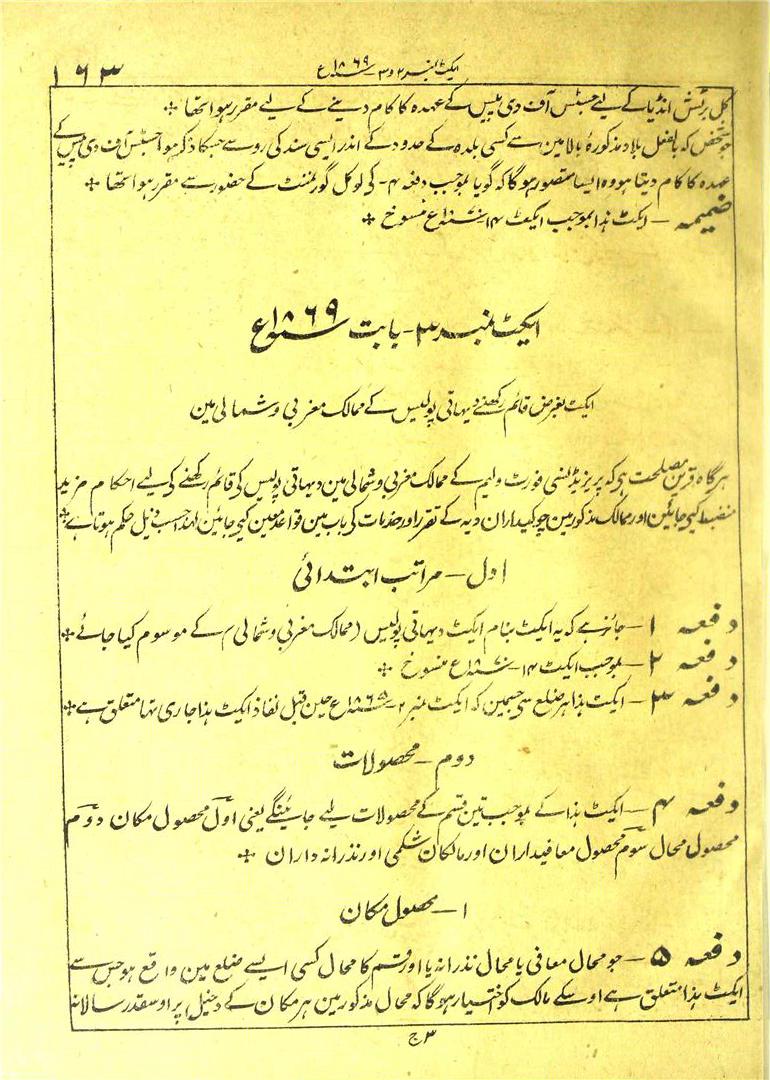 ایکٹ نمبر ۲ و ۳ - سنہ ۱۸۶۹ع
۱۶۳
کل برٹش انڈیا کے لیے جسٹس آف دی پیس کے عہدہ کا کام دینے کے لیے مقرر ہوا تھا ⁘
جو شخص کہ بالفعل بلاد مذکورۂ بالا مین سے کسی بلدہ کے حدود کے اندر ایسی سند کی رو سے جسکا ذکر ہوا جسٹس آف دی پیس کے
عہدہ کا کام دیتا ہو وہ ایسا متصور ہوگا کہ گویا بموجب دفعہ ۴ - کی لوکل گورنمنٹ کے حضور سے مقرر ہوا تھا ⁘
ضمیمہ – ایکٹ ہذا بموجب ایکٹ ۱۴ سنہ ۱۸۷۰ع منسوخ ⁘
ایکٹ نمبر ۳ - بابت سنہ ۱۸۶۹ع
ایکٹ بغرض قائم رکھنے دیہاتی پولیس کے ممالک مغربی و شمالی مین
ہرگاہ قرین مصلحت ہی کہ پریزیڈنسی فورٹ ولیم کے ممالک مغربی و شمالی مین دیہاتی پولیس کی قائم رکھنے کی لیے احکام مزید
منضبط کیی جائین اور ممالک مذکور مین چوکیداران دیہ کے تقرر اور خدمات کی باب مین قواعد معین کیی جائین لہذا حسب ذیل حکم ہوتا ہے ⁘
اول – مراتب ابتدائی
دفعہ ۱ – جائز ہے کہ یہ ایکٹ بنام ایکٹ دیہاتی پولیس (ممالک مغربی و شمالی) کے موسوم کیا جائے ⁘
دفعہ ۲ – بموجب ایکٹ ۱۴ - سنہ ۱۸۷۰ع منسوخ ⁘
دفعہ ۳ – ایکٹ ہذا ہر ضلع سی جسمین کہ ایکٹ نمبر ۲ سنہ ۱۸۶۵ع حین قبل نفاذ ایکٹ ہذا جاری تہا متعلق ہے ⁘
دوم – محصولات
دفعہ ۴ – ایکٹ ہذا کے بموجب تین قسم کے محصولات لیے جائینگے یعنی اول محصول مکان دوم
محصول محال سوم محصول معافیداران اور مالکان شکمی اور نذرانہ داران ⁘
۱ – محصول مکان
دفعہ ۵ – جو محال معافی یا محال نذرانہ یا اور قسم کا محال کسی ایسے ضلع مین واقع ہو جس سے
ایکٹ ہذا متعلق ہے اوسکے مالک کو اختیار ہوگا کہ محال مذکور مین ہر مکان کے دخیل پر اوسقدر سالانہ
۳ ج